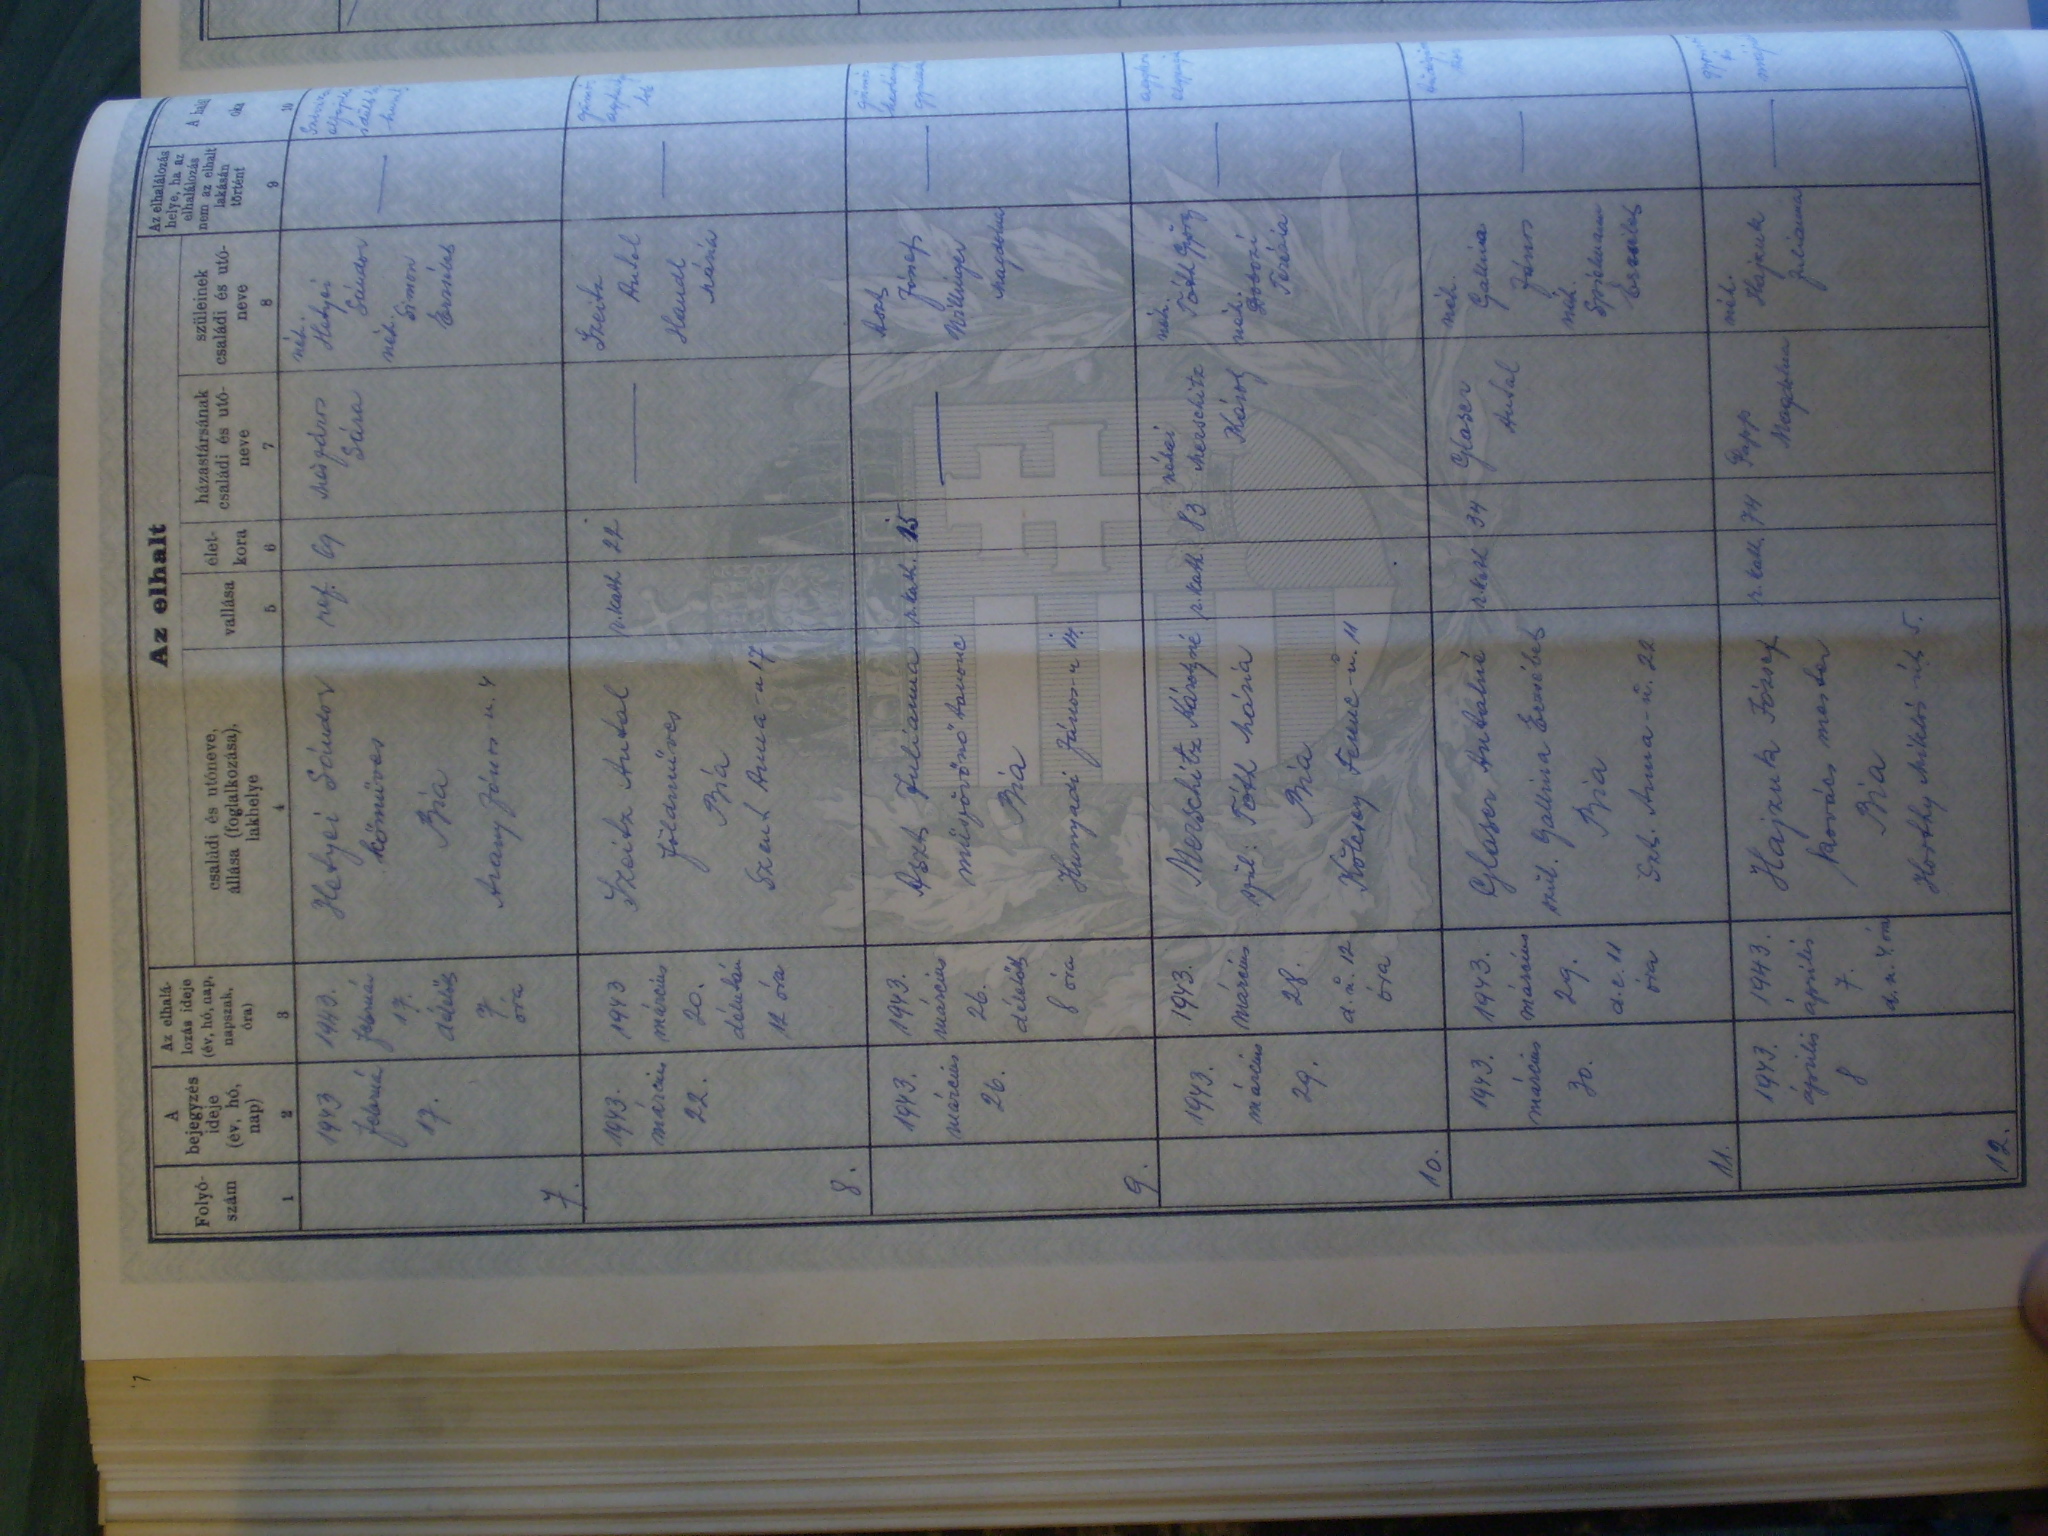 Az elhalt
Folyó-
szám
A
bejegyzés
ideje
(év, hó,
nap)
Az elhalá-
lozás ideje
(év, hó, nap,
napszak,
óra)
családi és utóneve,
állása (foglalkozása),
lakhelye
vallása
élet-
kora
házastársának
családi és utó-
neve
szüleinek
családi és utó-
neve
Az elhalálozás
helye, ha az
elhalálozás
nem az elhalt
lakásán
történt
A halál
oka
1 2 3 4 5 6 7 8 9 10
7.
1943
február
17.
1943.
február
17.
délelőtt
7
óra
Hetyei Sándor
kőműves
Bia
Arany János u. 4
ref.
69
Mészáros
Sára
néh.
Hetyei
Sándor
néh.
Simon
Erzsébet
8.
1943.
március
22.
1943
március
20.
délután
12 óra
Szeitz Antal
földműves
Bia
Szent Anna-u 17
r. kath.
22
Szeitz
Antal
Handl
Mária
9.
1943.
március
26.
1943.
március
26.
délelőtt
8 óra
Aszt Julianna
műszövőnő tanonc
Bia
Hunyadi János u 14.
r. kath.
15
Aszt
József
Millinger
Magdolna
10.
1943.
március
29.
1943.
március
28.
d. u. 12
óra
Merschitz Károlyné
szül: Tóth Mária
Bia
Kölcsey Ferenc-u. 11
r. kath.
83
néhai
Merschitz
Károly
néh.
Tóth György
néh.
Dobozi
Terézia
11.
1943.
március
30.
1943.
március
29.
d. e. 11
óra
Glaser Antalné
szül. Gallina Erzsébet
Bia
Szt. Anna-u. 22
r. kath
34
Glaser
Antal
néh.
Gallina
János
néh.
Spielmann
Erzsébet
12.
1943.
április
8
1943.
április
7.
d. u. 4 óra
Hajzuk József
kovács mester
Bia
Horthy Miklós út 5.
r. kath.
74
Papp
Magdolna
néh.
Hajzuk
Julianna
7.